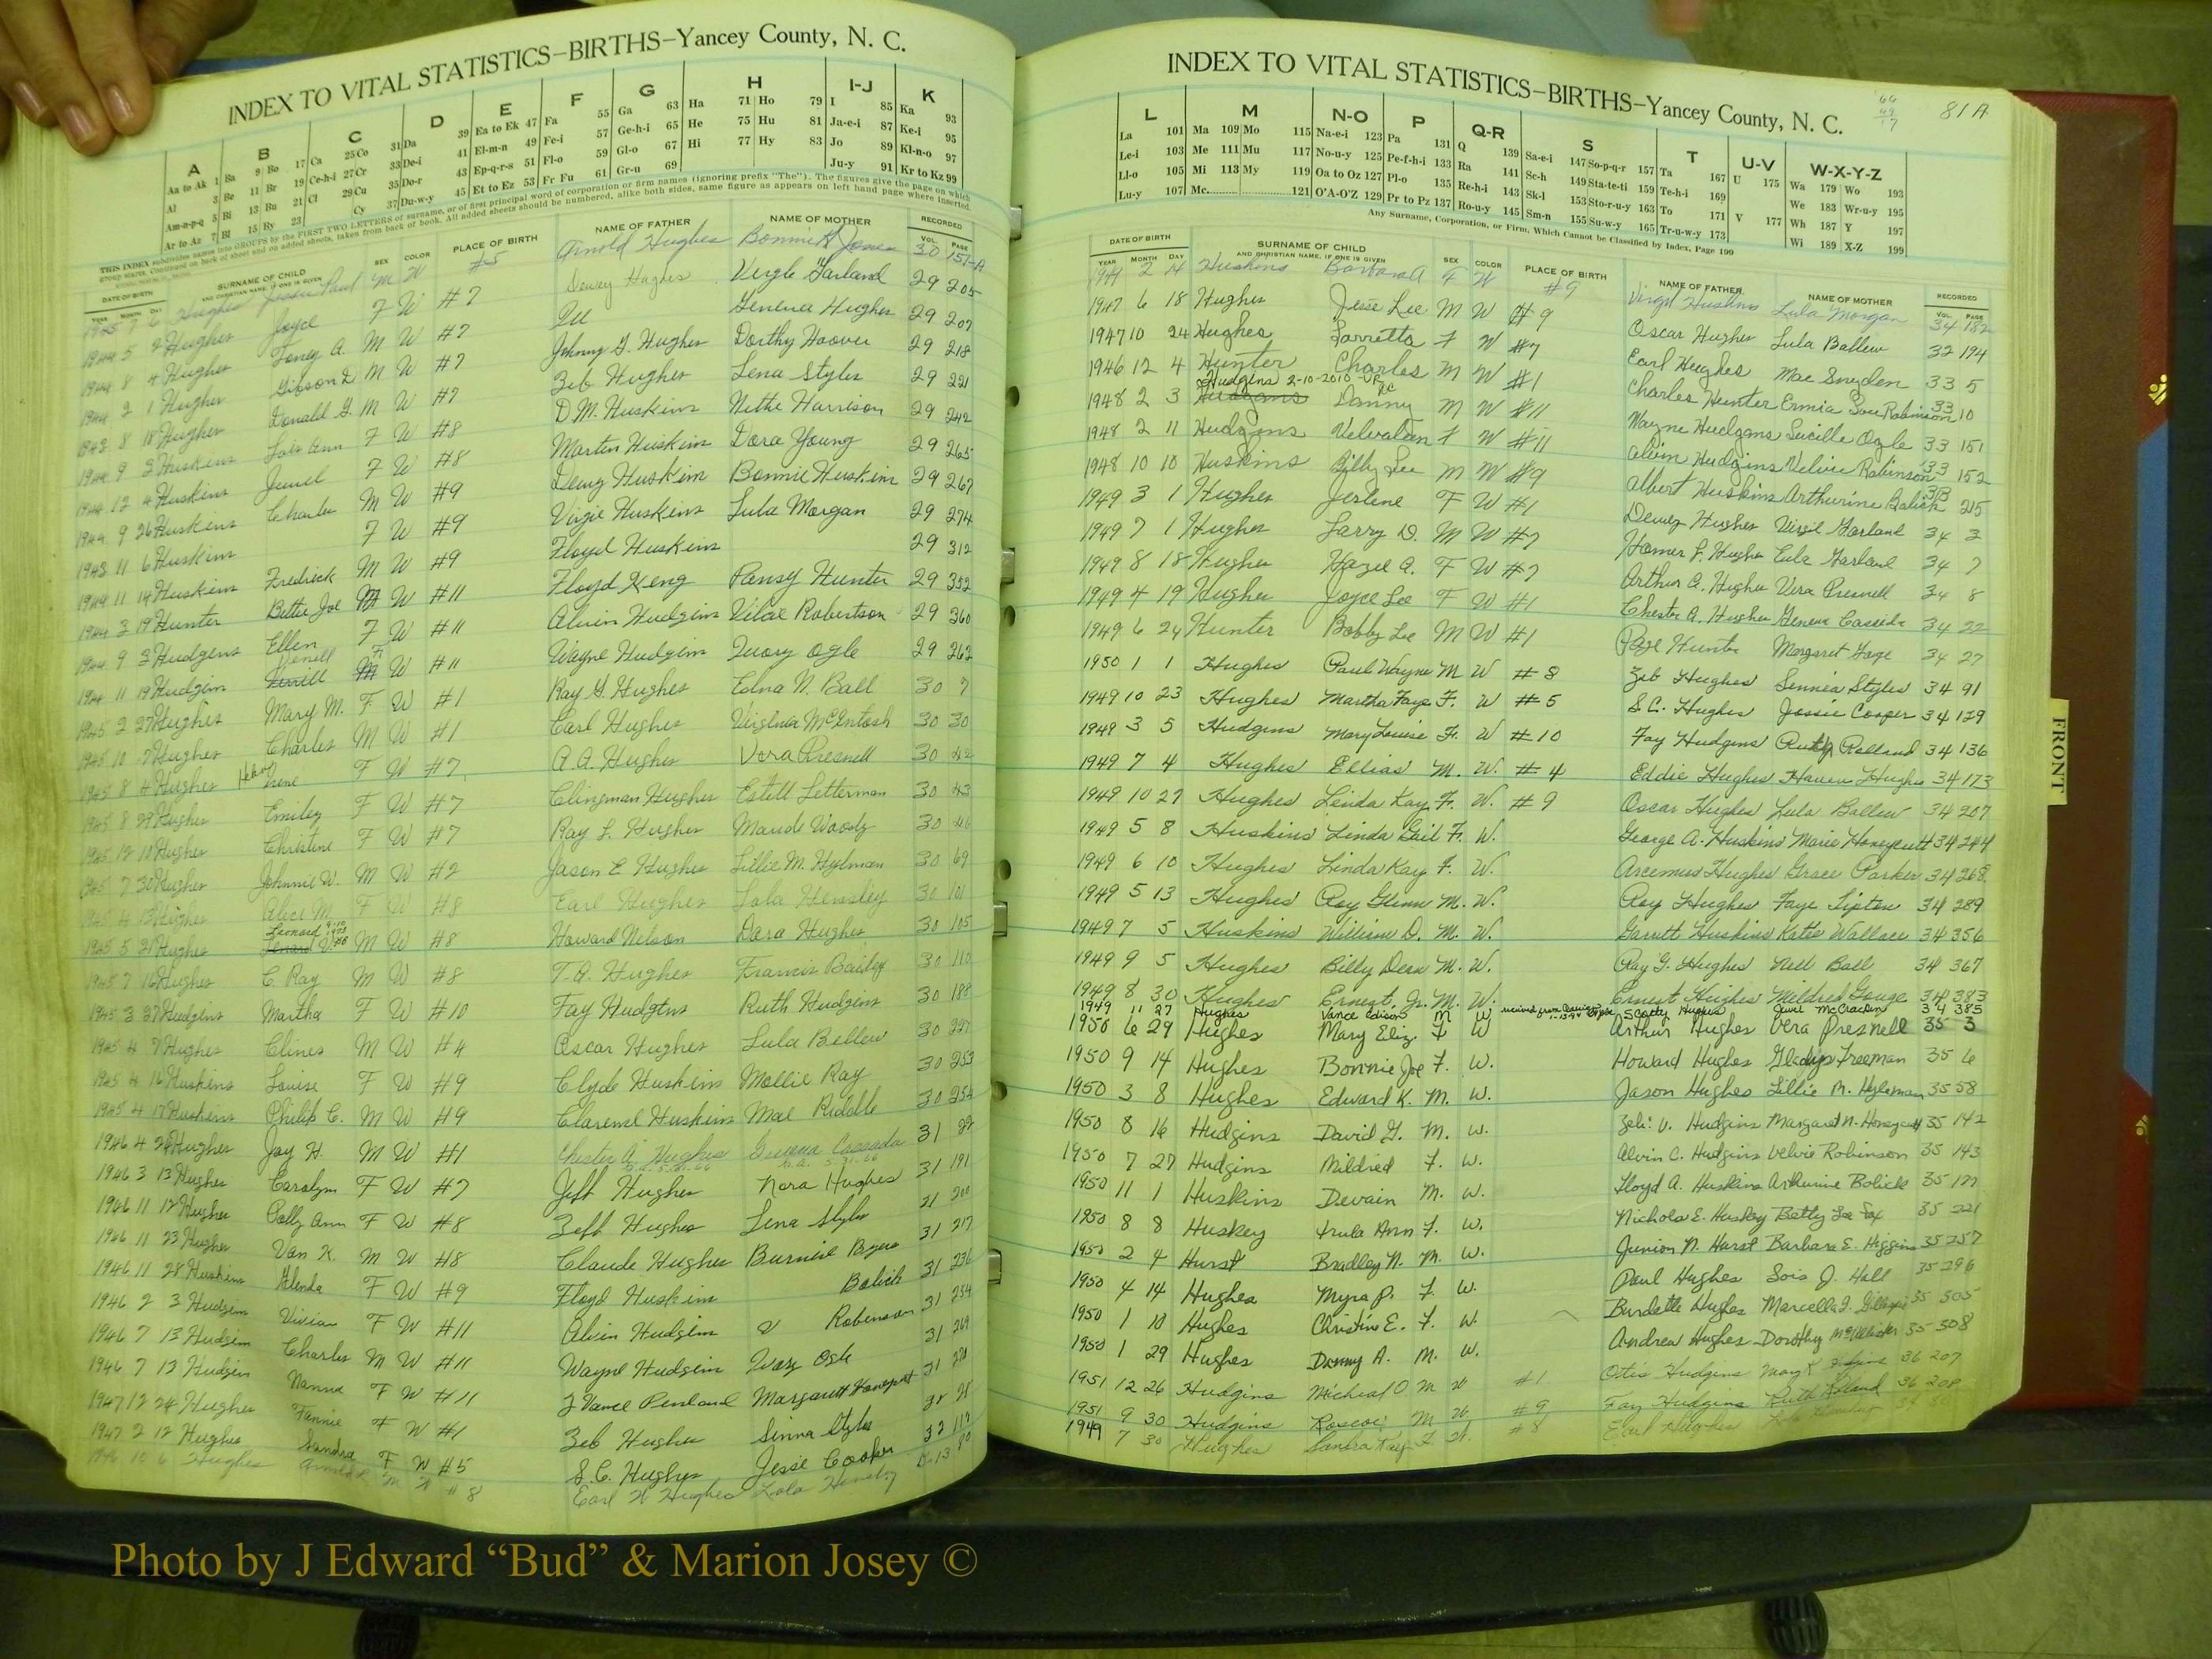 INDEX TO VITAL STATISTICS—BIRTHS—Yancey County, N. C.
A B C D E F G H I-J K
Aa to Ak 1 Ba 9 Bo 17 Ca 25 Co 31 Da 39 Ea to Ek 47 Fa 55 Ga 63 Ha 71 Ho 79 I 85 Ka 93
Al 3 Be 11 Br 19 Ce-h-i 27 Cr 33 De-i 41 El-m-n 49 Fe-i 57 Ge-h-i 65 He 75 Hu 81 Ja-e-i 87 Ke-i 95
Am-n-p-q 5 Bi 13 Bu 21 Cl 29 Cu 35 Do-r 43 Ep-q-r-s 51 Fl-o 59 Gl-o 67 Hi 77 Hy 83 Jo 89 Kl-n-o 97
Ar to Az 7 Bl 15 By 23 Cy 37 Du-w-y 45 Et to Ez 53 Fr Fu 61 Gr-u 69 Ju-y 91 Kr to Kz 99
DATE OF BIRTH SURNAME OF CHILD AND CHRISTIAN NAME, IF ONE IS GIVEN SEX COLOR PLACE OF BIRTH NAME OF FATHER NAME OF MOTHER RECORDED
YEAR MONTH DAY VOL. PAGE
1945 7 6 Hughes Paul M W #5 Arnold Hughes Bonnie Jones 30 151-A
1944 5 2 Hughes Joyce F W #7 Dewey Hughes Virgle Garland 29 205
1944 8 4 Hughes Toney A. M W #7 Genena Hughes 29 207
1944 2 1 Hughes Gibson D M W #7 Johnny G. Hughes Dorthy Hoover 29 218
1943 8 18 Hughes Donald G. M W #7 Zeb Hughes Lena Styles 29 221
1944 9 3 Huskins Lois Ann F W #8 D.M. Huskins Nettie Harrison 29 242
1944 12 4 Huskins Jewel F W #8 Martin Huskins Dora Young 29 265
1944 9 26 Huskins Charles M W #9 Dewy Huskins Bonnie Huskins 29 267
1943 11 6 Huskins F W #9 Virgie Huskins Lula Morgan 29 274
1944 11 14 Huskins Fredrick M W #9 Floyd Huskins 29 312
1944 3 19 Hunter Bettie Joe W #11 Floyd Keng Pansy Hunter 29 352
1944 9 3 Hudgens Ellen F W #11 Alvin Hudgins Vilae Robertson 29 360
1944 11 19 Hudgins W #11 Wayne Hudgins Ivory Ogle 29 362
1945 2 27 Hughes Mary M. F W #1 Ray G. Hughes Edna N. Ball 30 7
1945 10 7 Hughes Charles M W #1 Carl Hughes Virginia McIntosh 30 30
1945 8 4 Hughes Irene F W #7 A.A. Hughes Vera Presnell 30 42
1945 8 29 Hughes Emiley F W #7 Clingman Hughes Estell Letterman 30 43
1945 12 11 Hughes Christine F W #7 Ray L. Hughes Maude Woody 30 46
1945 7 30 Hughes Johnnie W. M W #2 Jason E Hughes Lillie M. Hyleman 30 69
1945 4 13 Hughes Alice M. F W #8 Earl Hughes Lola Hensley 30 101
1945 5 31 Hughes Leonard M W #8 Howard Nelson Dara Hughes 30 105
1945 7 16 Hughes C. Ray M W #8 T.A. Hughes Francis Bailey 30 110
1945 3 27 Hudgins Martha F W #10 Fay Hudgins Ruth Hudgins 30 188
1945 4 9 Hughes Clines M W #4 Oscar Hughes Lula Bellew 30 227
1945 4 16 Huskins Louise F W #9 Clyde Huskins Mollie Ray 30 253
1945 4 17 Huskins Philip C. M W #9 Clarense Huskins Mae Riddle 30 254
1946 4 26 Hughes Jay H. M W #1 Chester A. Hughes Genena Cassada 31 22
1946 3 13 Hughes Carolyn F W #7 Jeff Hughes Nora Hughes 31 191
1946 11 12 Hughes Polly Ann F W #8 Zeff Hughes Lena Styles 31 200
1946 11 23 Hughes Van K. M W #8 Claude Hughes Burniel Byers 31 217
1946 11 28 Huskins Glenda F W #9 Floyd Huskins Bolick 31 236
1946 2 3 Hudgins Vivian F W #11 Alvin Hudgins V Robinson 31 254
1946 7 13 Hudgins Charles M W #11 Wayne Hudgins Ivory Ogle 31 269
1946 7 13 Hudgins Nanna F W #11 J Vance Penland Margarett Honeycutt 31
1947 12 24 Hughes Fannie F W #1 Zeb Hughes Sinna Styles
1947 2 12 Hughes Sandra F W #5 S.C. Hughes Jessie Cooper 32 117
1946 10 6 Hughes M W #8 Earl W Hughes Lola Hensley
INDEX TO VITAL STATISTICS—BIRTHS—Yancey County, N. C.
81 A
L M N-O P Q-R S T U-V W-X-Y-Z
La 101 Ma 109 Mo 115 Na-e-i 123 Pa 131 Q 139 Sa-e-i 147 So-p-q-r 157 Ta 167 U 175 Wa 179 Wo 193
Le-i 103 Me 111 Mu 117 No-u-y 125 Pe-f-h-i 133 Ra 141 Sc-h 149 Sta-te-ti 159 Te-h-i 169 We 183 Wr-u-y 195
Ll-o 105 Mi 113 My 119 Oa to Oz 127 Pl-o 135 Re-h-i 143 Sk-l 153 Sto-r-u-y 163 To 171 V 177 Wh 187 Y 197
Lu-y 107 Mc 121 O'A-O'Z 129 Pr to Pz 137 Ro-u-y 145 Sm-n 155 Su-w-y 165 Tr-u-w-y 173 Wi 189 X-Z 199
Any Surname, Corporation, or Firm, Which Cannot be Classified by Index, Page 199
DATE OF BIRTH SURNAME OF CHILD AND CHRISTIAN NAME, IF ONE IS GIVEN SEX COLOR PLACE OF BIRTH NAME OF FATHER NAME OF MOTHER RECORDED
YEAR MONTH DAY VOL. PAGE
1949 2 14 Huskins Barbara A F W #9 Virgil Huskins Lula Morgan 34 182
1947 6 18 Hughes Jesse Lee M W #9 Oscar Hughes Lula Ballew 32 194
1947 10 24 Hughes Larretta F W #7 Earl Hughes Mae Snyden 33 5
1946 12 4 Hunter Charles M W #1 Charles Hunter Ermia Lou Robinson 33 10
Hudgins 2-10-2010 -VR
1948 2 3 Danny M W #11 Wayne Hudgins Lucille Ogle 33 151
1948 2 11 Hudgins Velvalan F W #11 Alvin Hudgins Velvie Robinson 33 152
1948 10 10 Huskins Billy Lee M W #9 Albert Huskins Arthurine Bolick 33 215
1949 3 1 Hughes Jerlene F W #1 Dewey Hughes Virgil Garland 34 3
1949 7 1 Hughes Larry D. M W #7 Homer L. Hughes Eula Garland 34 7
1949 8 18 Hughes Hazel A. F W #7 Arthur A. Hughes Vera Presnell 34 8
1949 4 19 Hughes Joyce Lee F W #1 Chester A. Hughes Geneva Cassida 34 22
1949 6 24 Hunter Bobby Lee M W #1 Page Hunter Margaret Gage 34 27
1950 1 1 Hughes Paul Wayne M W #8 Zeb Hughes Sennia Styles 34 91
1949 10 23 Hughes Martha Faye F. W #5 S.C. Hughes Jossie Cooper 34 129
1949 3 5 Hudgins Mary Louise F. W #10 Fay Hudgins Ruth Rolland 34 136
1949 7 4 Hughes Ellias M. W. #4 Eddie Hughes Hughes 34 173
1949 10 27 Hughes Linda Kay F. W. #9 Oscar Hughes Lula Ballew 34 207
1949 5 8 Huskins Linda Gail F. W. George A. Huskins Marie Honeycutt 34 244
1949 6 10 Hughes Linda Kay F. W. Arcemus Hughes Grace Parker 34 268
1949 5 13 Hughes Roy Glenn M. W. Roy Hughes Faye Lipton 34 289
1949 7 5 Huskins William D. M. W. Garrett Huskins Katie Wallace 34 356
1949 9 5 Hughes Billy Dean M. W. Ray G. Hughes Nell Ball 34 367
1949 8 30 Hughes Ernest, Jr. M. W. Ernest Hughes Mildred Gouge 34 383
1949 11 27 Hughes Vance Edison M W Scotty Hughes June McCracken 34 385
1950 6 29 Hughes Mary Eliz. F W Arthur Hughes Vera Presnell 35 3
1950 9 14 Hughes Bonnie Joe F. W. Howard Hughes Gladys Freeman 35 6
1950 3 8 Hughes Edward K. M. W. Jason Hughes Lillie M. Hyleman 35 58
1950 8 16 Hudgins David G. M. W. Zeb V. Hudgins Margaret N. Honeycutt 35 142
1950 7 27 Hudgins Mildred F. W. Alvin C. Hudgins Velvie Robinson 35 143
1950 11 1 Huskins Devain M. W. Floyd A. Huskins Arthurine Bolick 35 177
1950 8 8 Huskey Trula Ann F. W. Nichola E. Huskey Betty Lee Fox 35 221
1950 2 4 Hurst Bradley N. M. W. Junion N. Hurst Barbara E. Higgins 35 257
1950 4 14 Hughes Myra P. F. W. Paul Hughes Lois J. Hall 35 296
1950 1 10 Hughes Christine E. F. W. Burdette Hughes Marcella J. Gillespie 35 305
1950 1 29 Hughes Danny A. M. W. Andrew Hughes Dorothy McAllister 35 308
1951 12 26 Hudgins Micheal O M W #1 Otis Hudgins Mary 36 207
1951 9 30 Hudgins Roscoe M W #9 Fay Hudgins Ruth Roland 36 208
1949 7 30 Hughes Sandra Kay F. W. #8 Earl Hughes
FRONT
Photo by J Edward “Bud” & Marion Josey ©